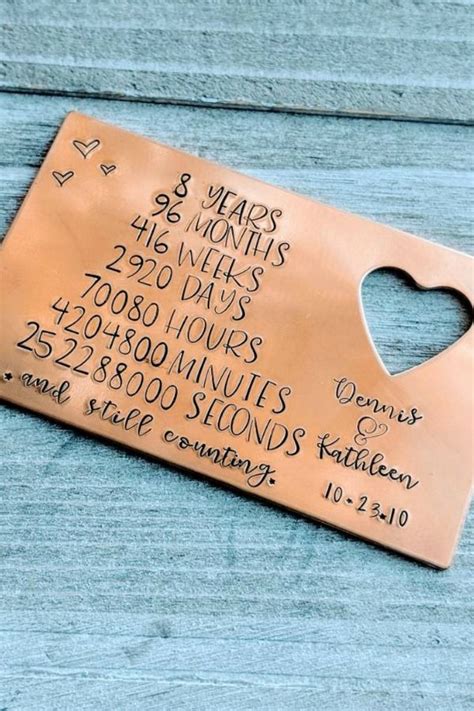 8 YEARS
96 MONTHS
416 WEEKS
2920 DAYS
70080 HOURS
4204800 MINUTES
252288000 SECONDS
and still counting
Dennis
&
Kathleen
10.23.10